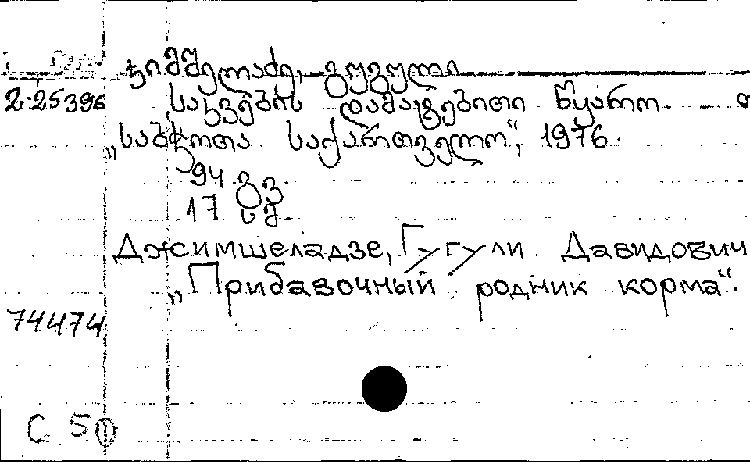 ჯიმშელაძე, გუგული
2.25396 საკვების დამატებითი წყარო.
„საბჭოთა საქართველო“, 1976
94 გვ
17 სმ
Джимшеладзе, Гугули Давидович
„Прибавочный родник корма“.
74474
С 5